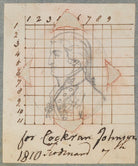 1 2 3 1 6 7 8 9
1
2
3
4
5
6
7
8
9
10
11
for Cockran Johnson
1810 Ferdinand 7th